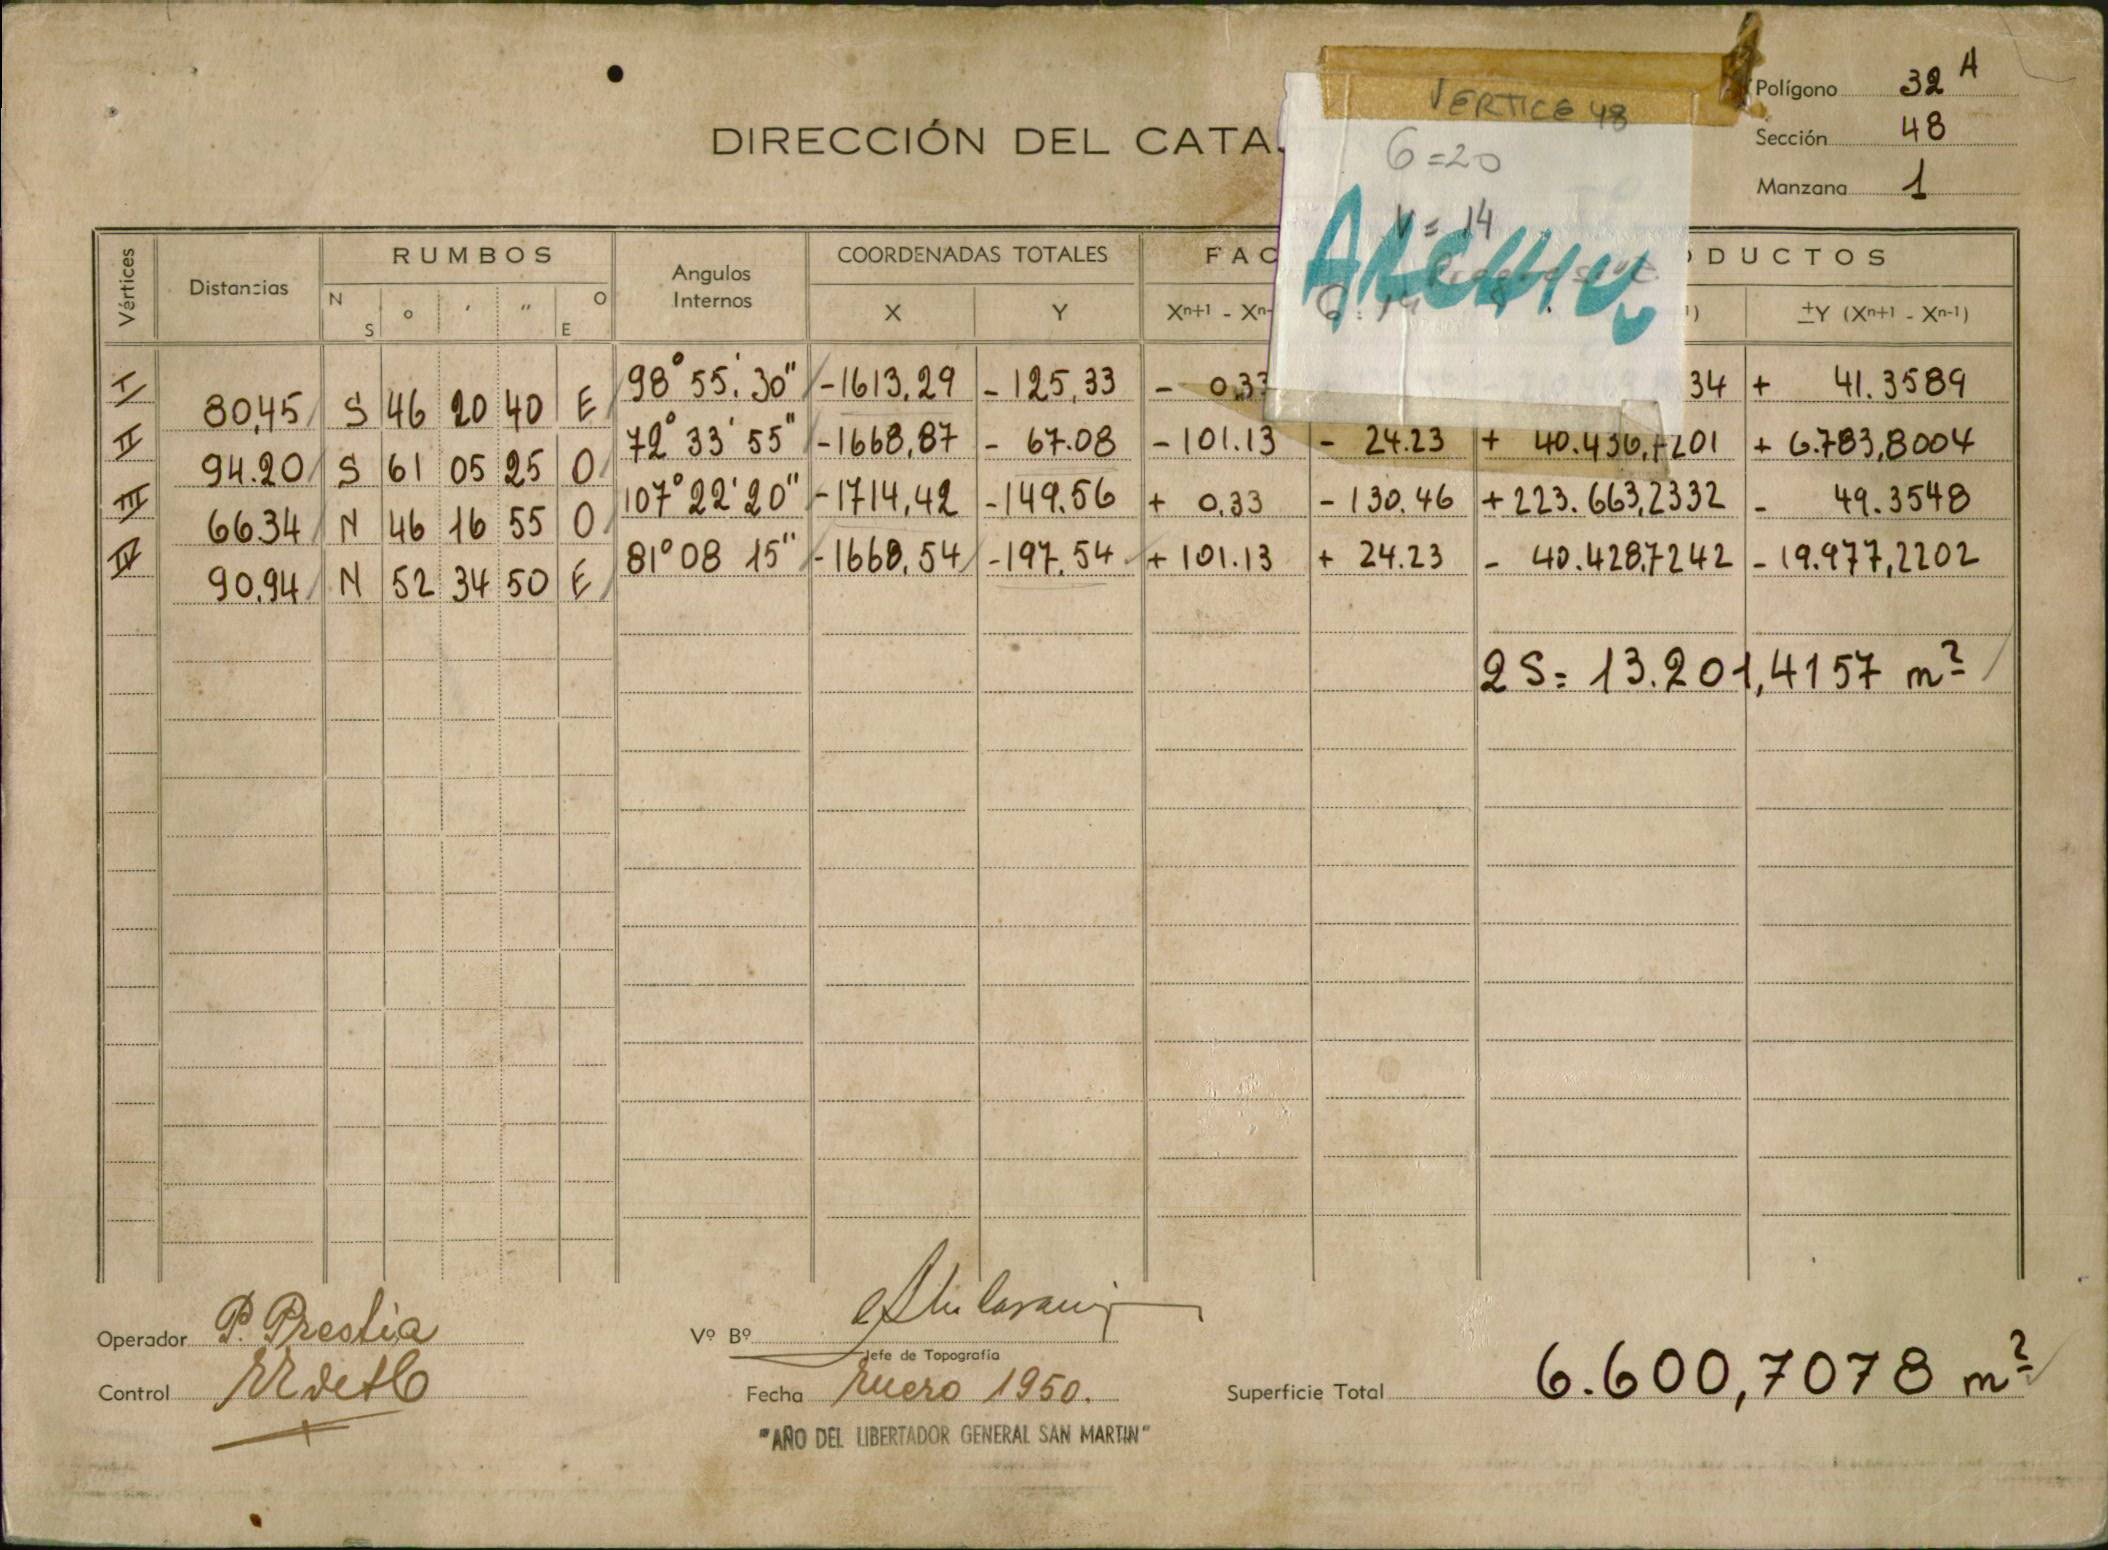 Polígono 32 A
Sección 48
Manzana 1
DIRECCIÓN DEL CATA
VERTICE 48
G=20
V=14
ARCHIV.
G=14
Vértices Distancias RUMBOS Angulos Internos COORDENADAS TOTALES FAC DUCTOS
N S ° ' " O E X Y Xn+1 - Xn- 1) ±Y (Xn+1 - Xn-1)
I 80,45 S 46 20 40 E 98° 55.' 30" -1613,29 - 125,33 - 0,33 34 + 41.3589
II 94.20 S 61 05 25 O 72° 33' 55" -1668,87 - 67.08 - 101.13 - 24.23 + 40.436,7201 + 6.783,8004
III 66.34 N 46 16 55 O 107° 22' 20" -1714,42 -149.56 + 0,33 - 130.46 +223.663,2332 - 49.3548
IV 90.94 N 52 34 50 E 81° 08 15" -1668,54 -197,54 + 101.13 + 24.23 - 40.428,7242 - 19.977,2202
2 S = 13.201,4157 m²
Operador P. Prestia
Vº Bº
Jefe de Topografía
Control
Fecha Enero 1950.
Superficie Total 6.600,7078 m²
"AÑO DEL LIBERTADOR GENERAL SAN MARTIN"